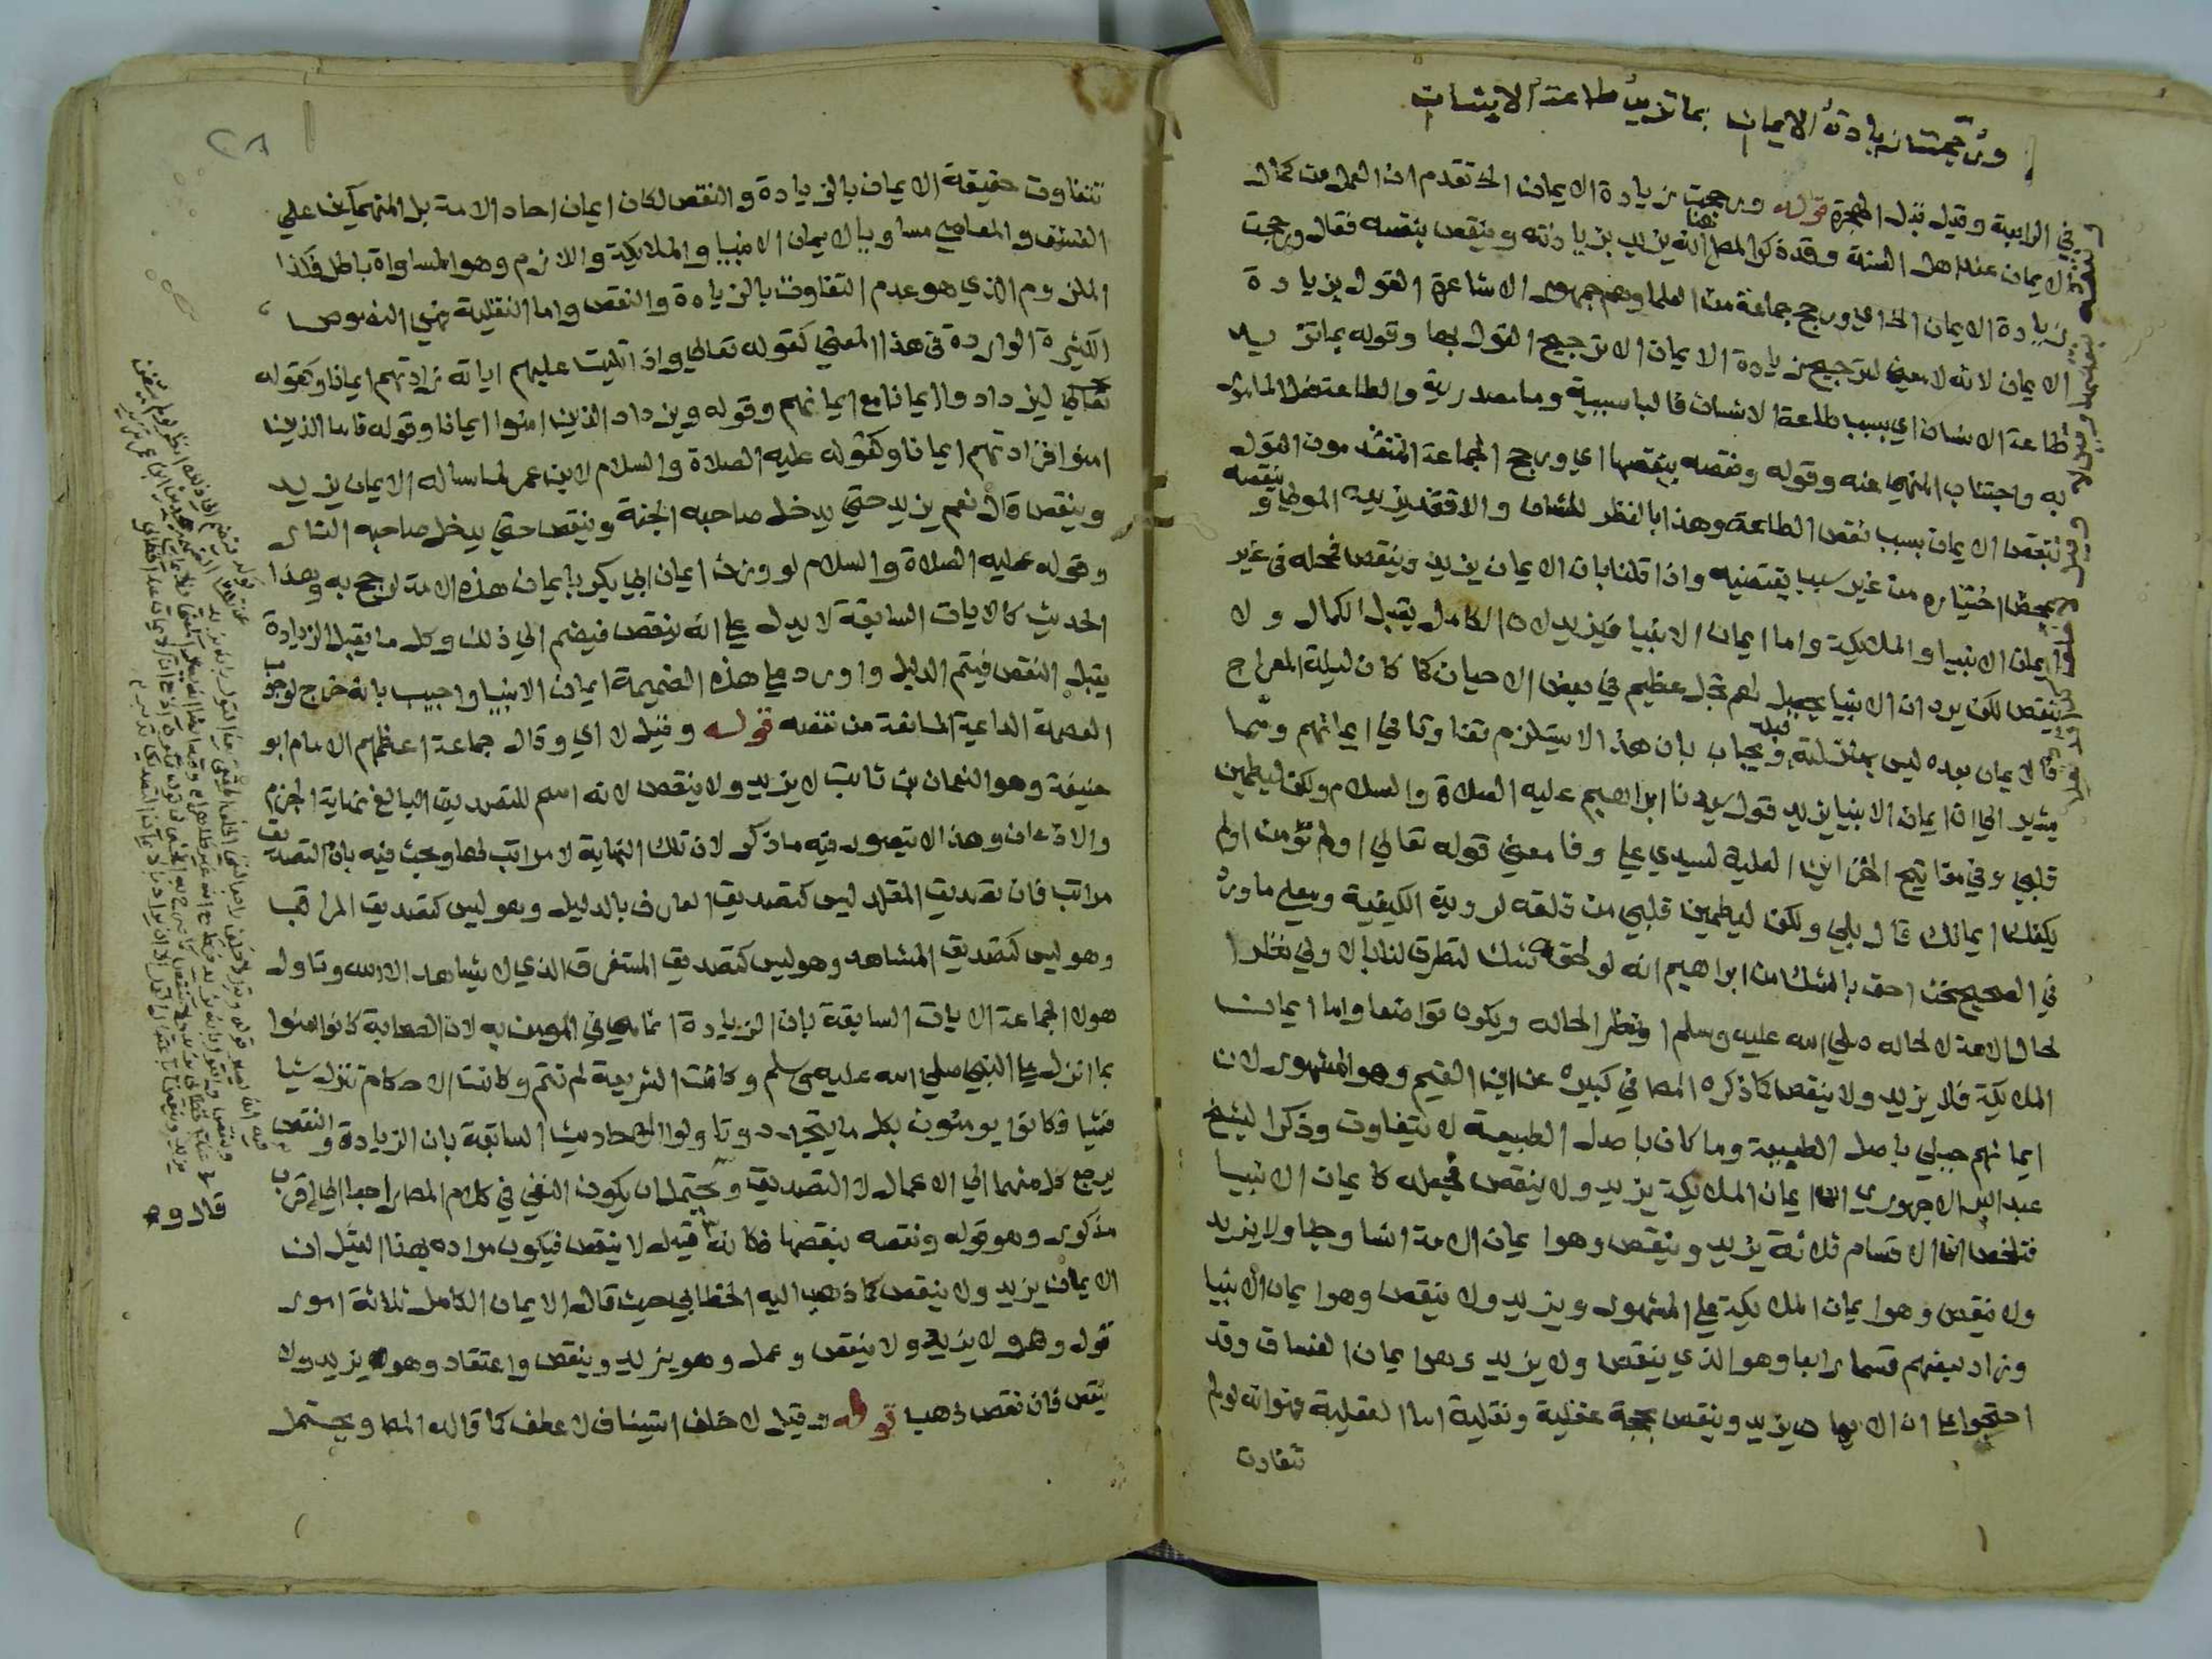 ورجحت زيادة الايمان بما تزيد طاعة الانسان
في الرابعة وقيل قبل الهجرة قوله ورجحت زيادة الايمان الخ تقدم ان العمل من كمال
الايمان عند اهل السنة وقد ذكر المص هنا انه يزيد بزيادته وينقص بنقصه فقال ورجحت
زيادة الايمان الخ اي ورجح جماعة من العلما وهم جمهور الاشاعرة القول بزيادة
الايمان لانه لا معنى لترجيح زيادة الايمان الا ترجيح القول بها وقوله بما تزيد
طاعة الانسان اي بسبب طاعة الانسان فالبا سببية وما مصدرية والطاعة فعل المامور
به واجتناب المنهي عنه وقوله ونقصه بنقصها اي ورجح الجماعة المتقدمون القول
بنقص الايمان بسبب نقص الطاعة وهذا بالنظر للشان والا فقد يزيده المولى وينقصه
بمحض اختياره من غير سبب يقتضيه واذا قلنا بان الايمان يزيد وينقص فمحله في غير
ايمان الانبيا والملايكة واما ايمان الانبيا فيزيد لان الكامل يقبل الكمال ولا
ينقص لكن يرد ان الانبيا يحصل لهم تجل عظيم في بعض الاحيان كما كان ليلة المعراج
فالايمان بعده ليس بمنزلته قبله ويجاب بان هذا لا يستلزم تفاوتا في ايمانهم ومما
يشير الى ان ايمان الانبيا يزيد قول سيدنا ابراهيم عليه الصلاة والسلام ولكن ليطمين
قلبي وفي مفاتيح الخزاين العلية لسيدي علي وفا معنى قوله تعالى اولم تؤمن اولم
يكفك ايمانك قال بلى ولكن ليطمين قلبي من قلقه لروية الكيفية ومعلى ما ورد
في الصحيح نحن احق بالشك من ابراهيم انه لو لحقه شك لتطرق لنا بالاولى نظرا
لحال الامة لا لحاله صلى الله عليه وسلم او نظر الحاله ويكون تواضعا واما ايمان
الملايكة فلا يزيد ولا ينقص كما ذكره المص في كبيره عن ابن القيم وهو المشهور لان
ايمانهم جبلي باصل الطبيعة وما كان باصل الطبيعة لا يتفاوت وذكر الشيخ
عبد البر الاجهوري ان ايمان الملايكة يزيد ولا ينقص فجعله كايمان الانبيا
فتلخص ان الاقسام ثلاثة يزيد وينقص وهو ايمان الامة انسا وجنا ولا يزيد
ولا ينقص وهو ايمان الملايكة على المشهور ويزيد ولا ينقص وهو ايمان الانبيا
وزاد بعضهم قسما رابعا وهو الذي ينقص ولا يزيد وهو ايمان الفساق وقد
احتجوا على ان الايمان يزيد وينقص بحجة عقلية ونقلية اما العقلية فهو انه لو لم
تتفاوت
تتفاوت حقيقة الايمان بالزيادة والنقص لكان ايمان احاد الامة بل المنهمكين على
الفسق والمعاصي مساويا لايمان الانبيا والملايكة واللازم وهو المساواة باطل فكذا
الملزوم الذي هو عدم التفاوت بالزيادة والنقص واما النقلية فهي النصوص
الكثيرة الواردة في هذا المعنى كقوله تعالى واذا تليت عليهم اياته زادتهم ايمانا وكقوله
تعالى ليزدادوا ايمانا مع ايمانهم وقوله ويزداد الذين امنوا ايمانا وقوله فاما الذين
امنوا فزادتهم ايمانا وكقوله عليه الصلاة والسلام لابن عمر لما ساله الايمان يزيد
وينقص قال نعم يزيد حتى يدخل صاحبه الجنة وينقص حتى يدخل صاحبه النار
وقوله عليه الصلاة والسلام لو وزن ايمان ابي بكر بايمان هذه الامة لرجح به وهذا
الحديث كالايات السابقة لا يدل على انه ينقص فيضم الى ذلك وكل ما يقبل الزيادة
يقبل النقص فيتم الدليل واورد على هذه الضميمة ايمان الانبيا واجيب بانه خرج لوجود
العصمة الداعية المانعة من نقصه قوله وقيل لا اي وقال جماعة اعظمهم الامام ابو
حنيفة وهو النعمان بن ثابت لا يزيد ولا ينقص لانه اسم للتصديق البالغ نهاية الجزم
والاذعان وهذا لا يتصور فيه ما ذكر لان تلك النهاية لا مراتب لها وبحث فيه بان التصديق
مراتب فان تصديق المقلد ليس كتصديق العارف بالدليل وهو ليس كتصديق المراقب
وهو ليس كتصديق المشاهد وهو ليس كتصديق المستغرق الذي لا يشاهد الا الله وتاول
هولا الجماعة الايات السابقة بان الزيادة انما هي في المومن به لان الصحابة كانوا امنوا
بما انزل على النبي صلى الله عليه وسلم وكانت الشريعة لم تتم وكانت الاحكام تنزل شيا
فشيا فكانوا يومنون بكل ما يتجدد وتاولوا الاحاديث السابقة بان الزيادة والنقص
يرجع كل منهما الى الاعمال لا التصديق ويحتمل ان يكون النفي في كلام المص راجعا الى اقرب
مذكور وهو قوله ونقصه بنقصها فكانه قيل لا ينقص فيكون مراده بهذا القيل ان
الايمان يزيد ولا ينقص كما ذهب اليه الخطابي حيث قال الايمان الكامل ثلاثة امور
قول وهو لا يزيد ولا ينقص وعمل وهو يزيد وينقص واعتقاد وهو يزيد ولا
ينقص فان نقص ذهب قوله وقيل لا خلف استيناف لا عطف كما قاله المص ويحتمل